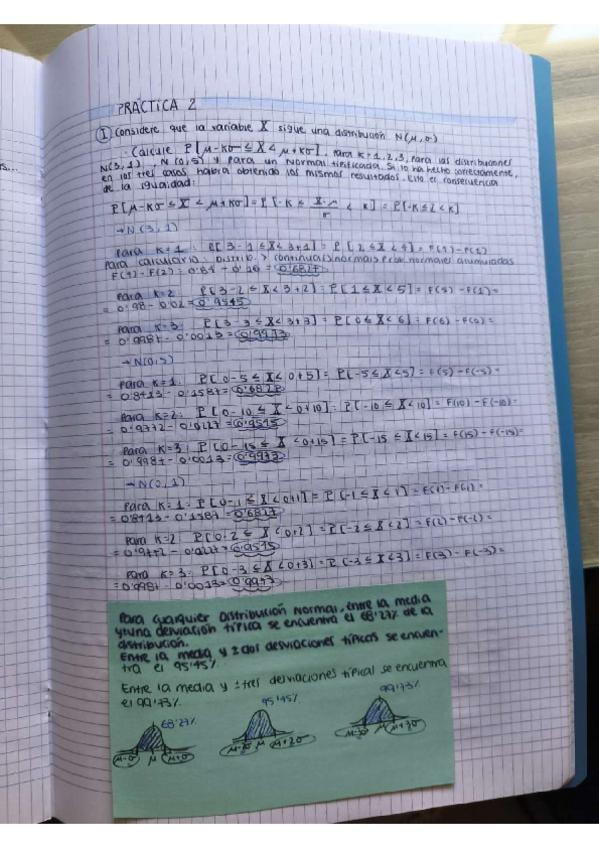 PRÁCTICA 2
① Considere que la variable X sigue una distribución N(μ,σ)
· Calcule P[μ-Kσ ≤ X < μ+Kσ], para K=1,2,3, para las distribuciones
N(3,1), N(0,5) y para un Normal tipificada. Si lo ha hecho correctamente,
en los tres casos habrá obtenido los mismos resultados. Ello es consecuencia
de la igualdad:
P[μ-Kσ ≤ X < μ+Kσ] = P[-K ≤ X-μ/σ < K] = P[-K ≤ Z < K]
→ N(3,1)
Para K=1: P[3-1 ≤ X < 3+1] = P[2 ≤ X < 4] = F(4)-F(2)
Para calcularlo: Distrib. > continuas > normal > Prob. normales acumuladas
F(4)-F(2) = 0'84 - 0'16 = 0'6827
Para K=2: P[3-2 ≤ X < 3+2] = P[1 ≤ X < 5] = F(5)-F(1) =
= 0'98 - 0'02 = 0'9545
Para K=3: P[3-3 ≤ X < 3+3] = P[0 ≤ X < 6] = F(6)-F(0) =
= 0'9987 - 0'0013 = 0'9973
→ N(0,5)
Para K=1: P[0-5 ≤ X < 0+5] = P[-5 ≤ X < 5] = F(5)-F(-5) =
= 0'8413 - 0'1587 = 0'6827
Para K=2: P[0-10 ≤ X < 0+10] = P[-10 ≤ X < 10] = F(10)-F(-10) =
= 0'9772 - 0'0227 = 0'9545
Para K=3: P[0-15 ≤ X < 0+15] = P[-15 ≤ X < 15] = F(15)-F(-15) =
= 0'9987 - 0'0013 = 0'9973
→ N(0,1)
Para K=1: P[0-1 ≤ X < 0+1] = P[-1 ≤ X < 1] = F(1)-F(-1) =
= 0'8413 - 0'1587 = 0'6827
Para K=2: P[0-2 ≤ X < 0+2] = P[-2 ≤ X < 2] = F(2)-F(-2) =
= 0'9772 - 0'0227 = 0'9545
Para K=3: P[0-3 ≤ X < 0+3] = P[-3 ≤ X < 3] = F(3)-F(-3) =
= 0'9987 - 0'0013 = 0'9973
Para cualquier distribución normal, entre la media
y una desviación típica se encuentra el 68'27% de la
distribución.
Entre la media y ± dos desviaciones típicas se encuen-
tra el 95'45%
Entre la media y ± tres desviaciones típicas se encuentra
el 99'73%
68'27% 95'45% 99'73%
μ-σ μ μ+σ μ-2σ μ μ+2σ μ-3σ μ μ+3σ